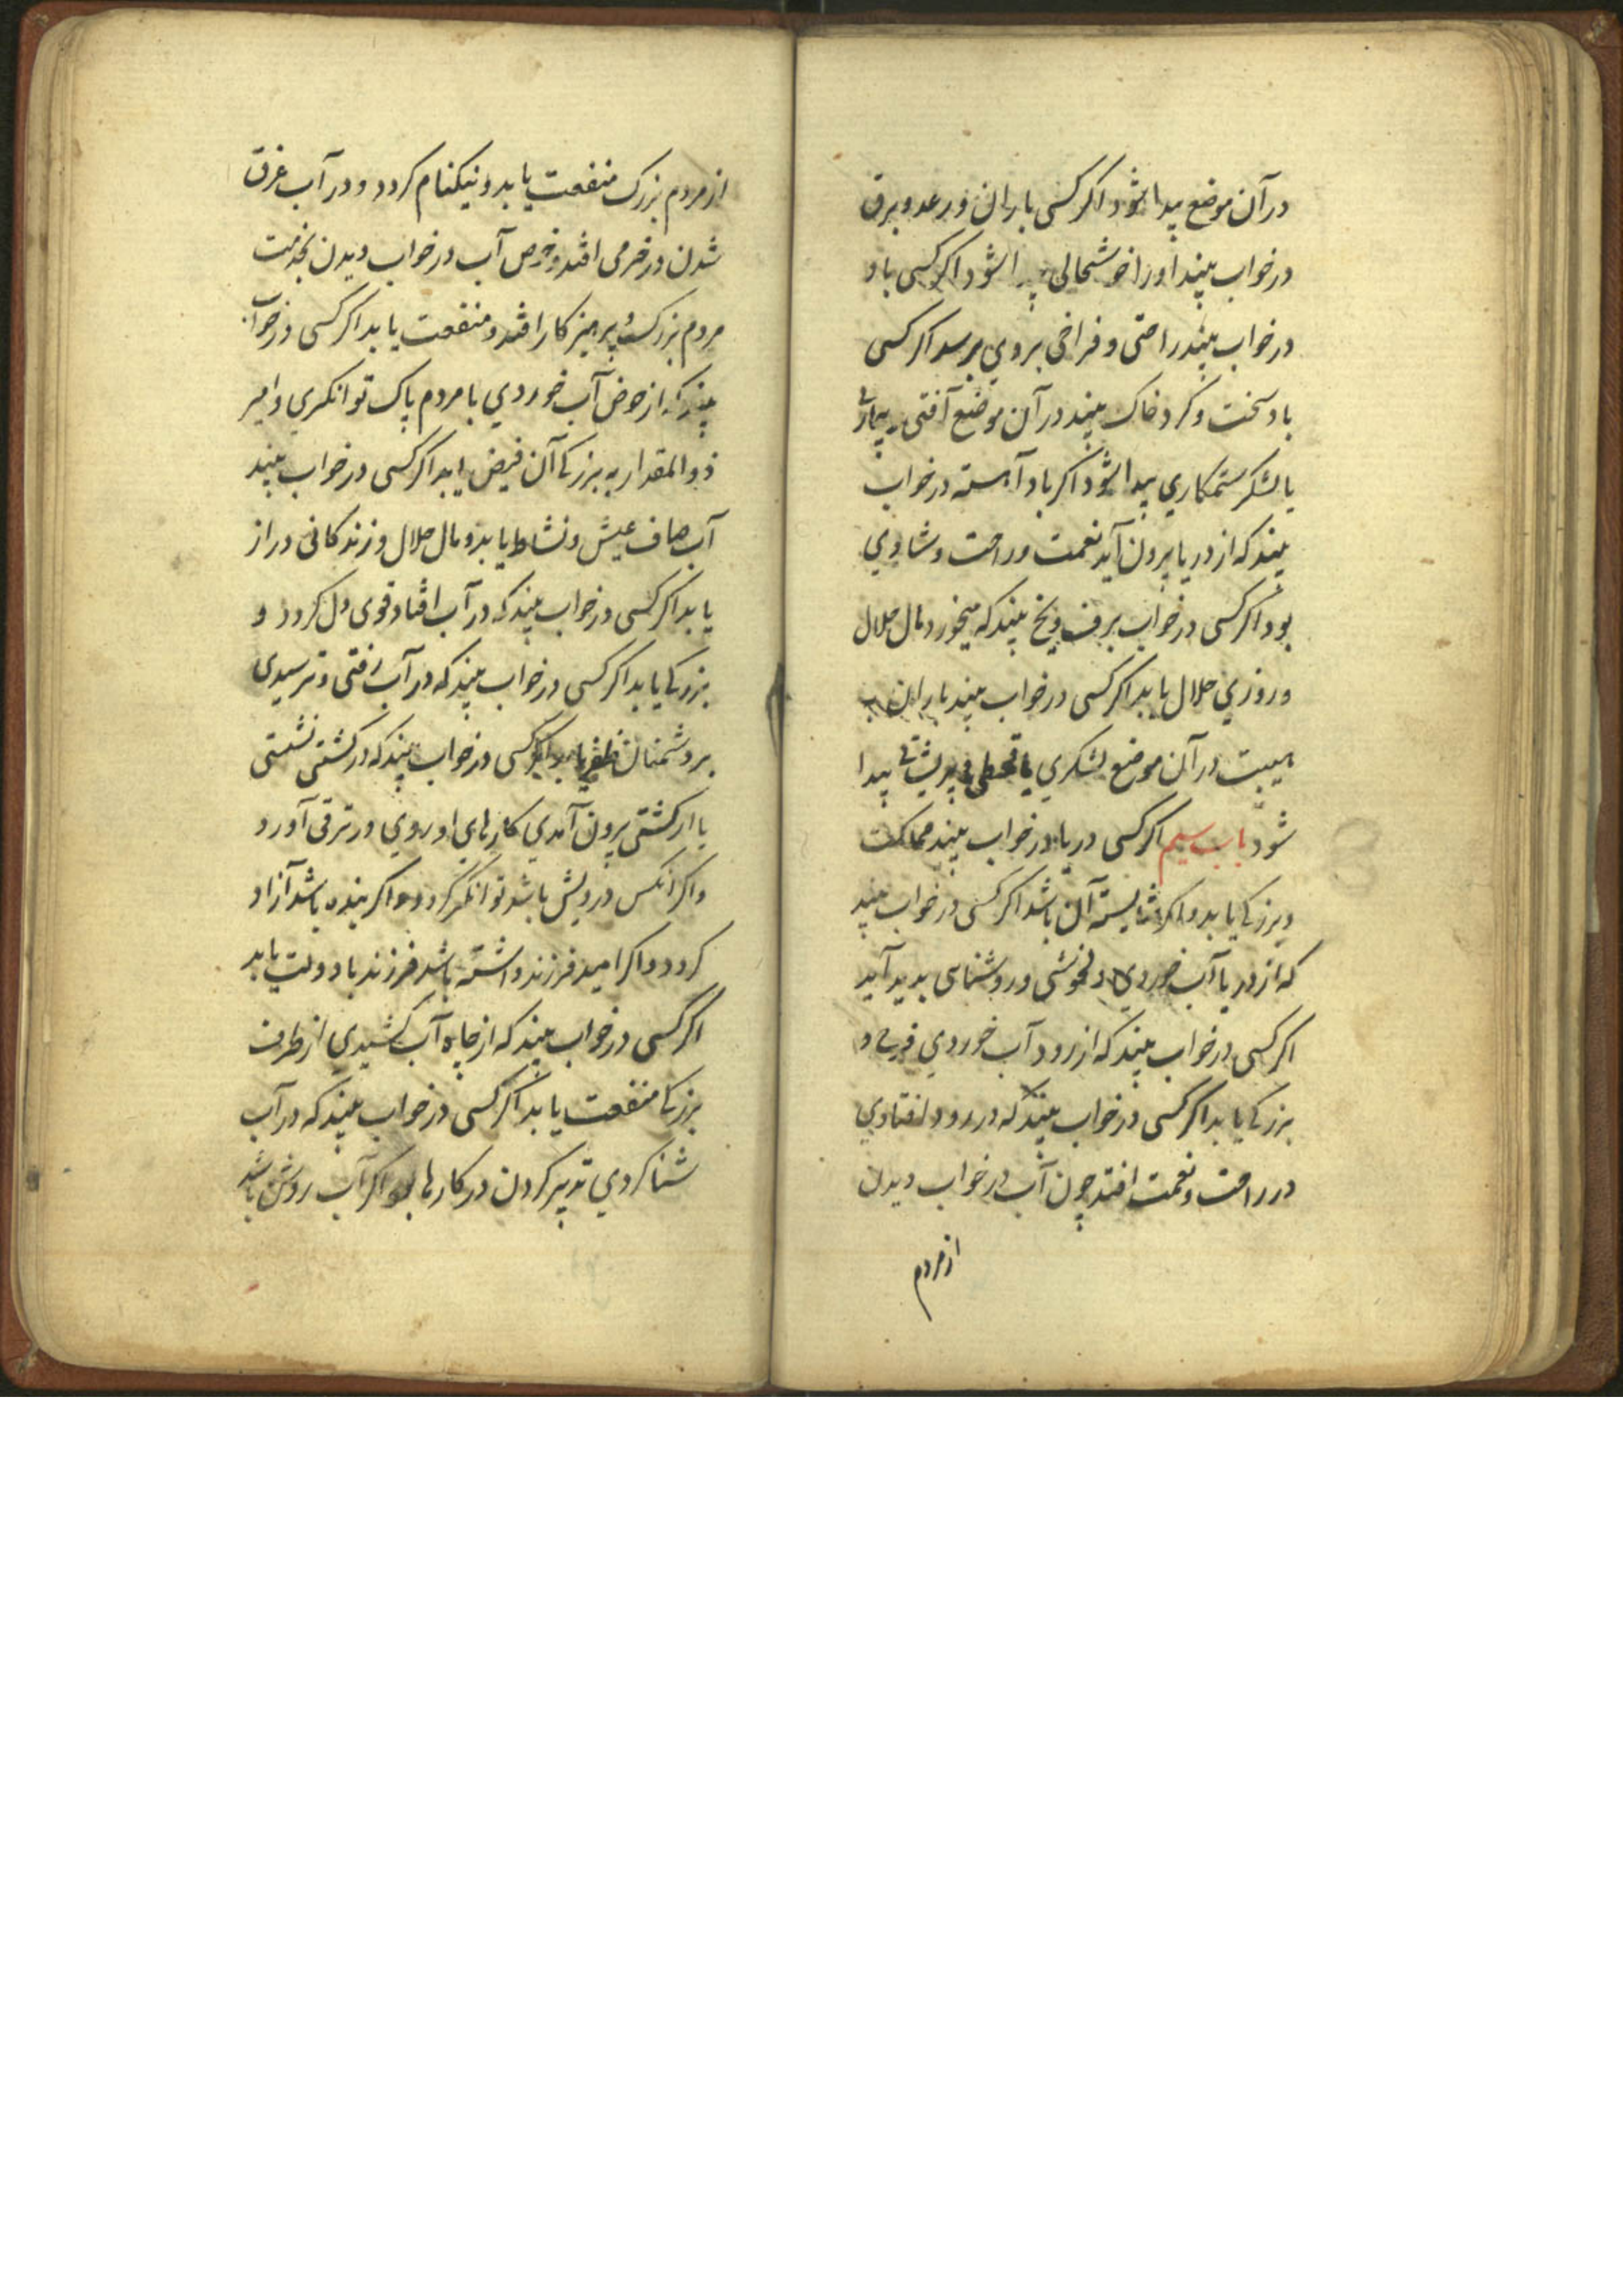 در آن موضع پیدا شود اکر کسی باران و رعد و برق
در خواب بیند او را خوشحالی پیدا شود اکر کسی باد
در خواب بیند راحتی و فراخی بروي برسد اکر کسی
باد سخت و کرد خاک بیند در آن موضع آفتی
یا لشکر ستمکاري پیدا شود اکر باد آهسته در خواب
بیند که از دریا بیرون آید نعمت و راحت و شادي
بود اکر کسی در خواب برف و یخ بیند که میخورد مال حلال
و روزي حلال یابد اکر کسی در خواب بیند باران با
هیبت در آن موضع لشکري یا قحطی و پریشانی پیدا
شود باب سیم اکر کسی دریا در خواب بیند مملکت
و بزرکی یابد و اکر شایسته آن باشد اکر کسی در خواب بیند
که از دریا آب خوردي دلخوشی و روشنایی پدید آید
اکر کسی در خواب بیند که از رود آب خوردي فرح و
بزرکی یابد اکر کسی در خواب بیند که در رود افتادي
در راحت و نعمت افتد چون آب در خواب دیدن
از مردم
از مردم بزرک منفعت یابد و نیکنام کردد و در آب غرق
شدن در خرمی افتد و حوض آب در خواب دیدن بخدمت
مردم بزرک و پرهیزکار افتد و منفعت یابد اکر کسی در خواب
بیند که از حوض آب خوردي با مردم پاک توانکري و امیر
ذو المقدار به بزرکی آن فیض یابد اکر کسی در خواب بیند
آب صاف عیش و نشاط یابد و مال حلال و زندکانی دراز
یابد اکر کسی در خواب بیند که در آب افتاد قوی دل کردد و
بزرکی یابد اکر کسی در خواب بیند که در آب رفتی و ترسیدی
بر دشمنان ظفر یابد اکر کسی در خواب بیند که در کشتی نشستی
یا از کشتی بیرون آمدي کارهاي او روي در ترقی آورد
و اکر انکس درویش باشد توانکر کردد و اکر بنده باشد آزاد
کردد و اکر امید فرزند داشته باشد فرزند با دولت یابد
اکر کسی در خواب بیند که از چاه آب کشیدي از طرف
بزرکی منفعت یابد اکر کسی در خواب بیند که در آب
شنا کردي تدبیر کردن در کارها بود اکر آب روشن باشد